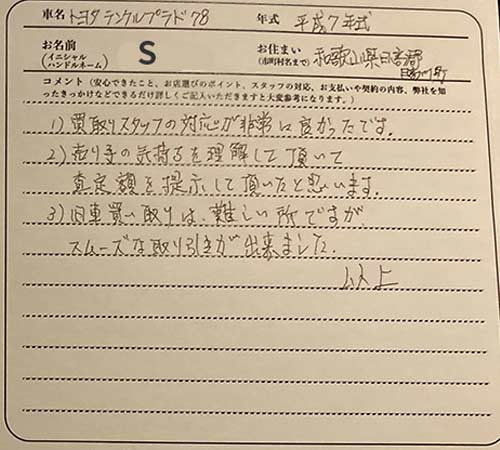 車名 トヨタ ランクルプラド 78 年式 平成7年式
お名前 (イニシャル ハンドルネーム) S お住まい (市町村名まで) 和歌山県日高郡
日高川町
コメント (安心できたこと、お店選びのポイント、スタッフの対応、お支払いや契約の内容、弊社を知
ったきっかけなどできるだけ詳しくご記入いただきますと大変参考になります。)
1) 買取りスタッフの対応が非常に良かったです。
2) 売り手の気持ちを理解して頂いて
査定額を提示して頂いたと思います。
3) 旧車買い取りは、難しい所ですが、
スムーズな取り引きが出来ました。
以上